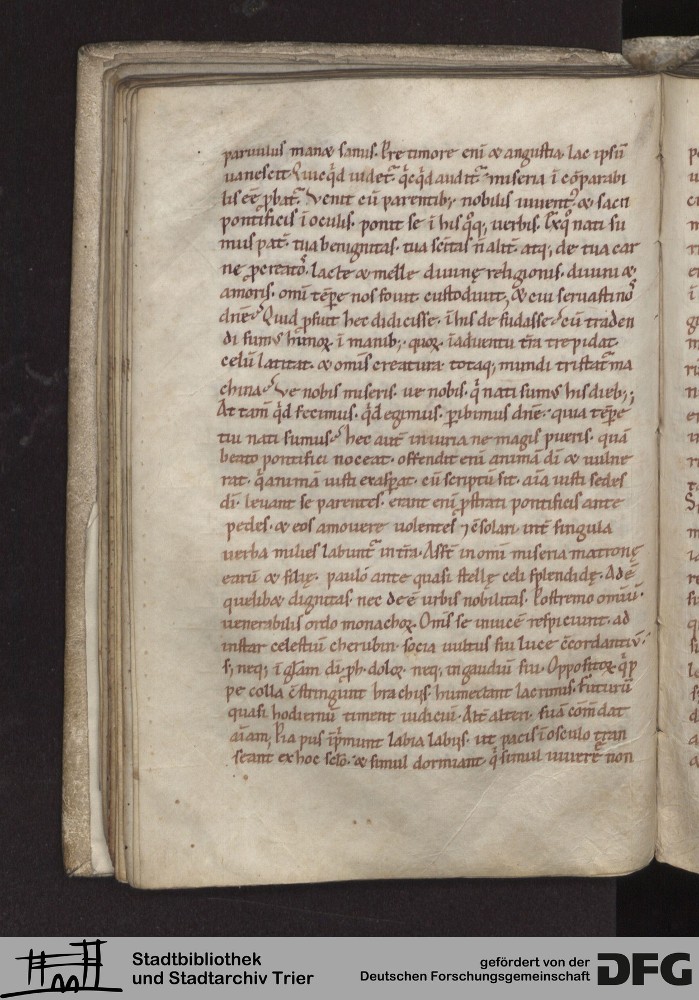 paruulus manæ sanus. Pre timore eni᷒ & angustia. lac ipsū
uanescit Quicq̇d uidet᷑. q̇cq̇d audit᷑. miseria ī cōparabi
lis eē ꝓbat᷑. Venit cū parentib; nobilis iuuent᷒. & sacri
pontificis ī oculis. ponit se ī his q̊q; uerbis.
mus pat̄. tua benignitas. tua
ne ꝓcreatos. lacte & melle diuinę religionis. diuini &
amoris. omī tēpe nos fouit custodiuit,
dn̄e. Quid ꝓfuit hec didicisse. ī his desudasse. cū traden
di sumus ī manib;. quoꝝ ī aduentu tr̄a trepidat.
celū latitat. & omīs creatura. totaq; mundi tristat᷑ ma
china. Ve nobis miseris. ue nobis. q̇ nati sum᷒ his dieb;.
At tam̄ q̇d fecimus. q̇d egimus. ꝑibimus dn̄e. quia tēpe
tuo nati sumus. hec aut̄ iniuria ne magis pueris. quā
beato pontifici noceat. offendit enī animā dī & uulne
rat. q̇ animā iusti exasꝑat. cū scriptū sit. aīa iusti sedes
dī. leuant se parentes. erant enī ꝓstrati pontificis ante
pedes. & eos amouere uolentes ⁊ c̄solari. int̄ singula
uerba milies labunt᷑ in tr̄a. Asst̄ in omī miseria matronę
earū & filię. paulo ante quasi stellę celi splendidę. Adē
quelibæ dignitas. nec deē urbis nobilitas. Postremo omīū
uenerabilis ordo monachoꝝ. Omīs se inuicē respiciunt. ad
instar celestiū cherubin. socia uultus sui luce c̄cordantiū.
s; neq; ī gl̄am dī. ꝓh dolor. neq; in gaudiū sui. Oppositoꝝ q̇ꝓ
pe colla c̄stringunt brachijs. humectant lacrimis. Futurū
quasi hodiernū timent iudiciū. Alt̄ alteri. suā cōm̄dat
aīam, Pia pijs īp̄munt labia labijs. ut pacis ī osculo tran
seant ex hoc sc̄lo. & simul dormiant. q̇ simul uiuere non
Stadtbibliothek
und Stadtarchiv Trier
gefördert von der
Deutschen Forschungsgemeinschaft
DFG